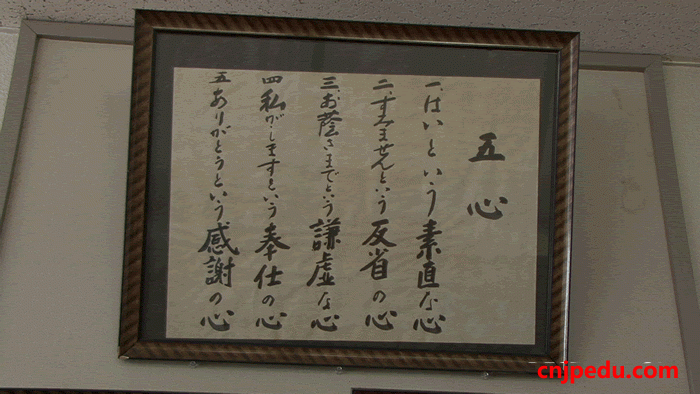 五心
一、はいという素直な心
二、すみませんという反省の心
三、お蔭さまでという謙虚な心
四、私がしますという奉仕の心
五、ありがとうという感謝の心
cnjpedu.com